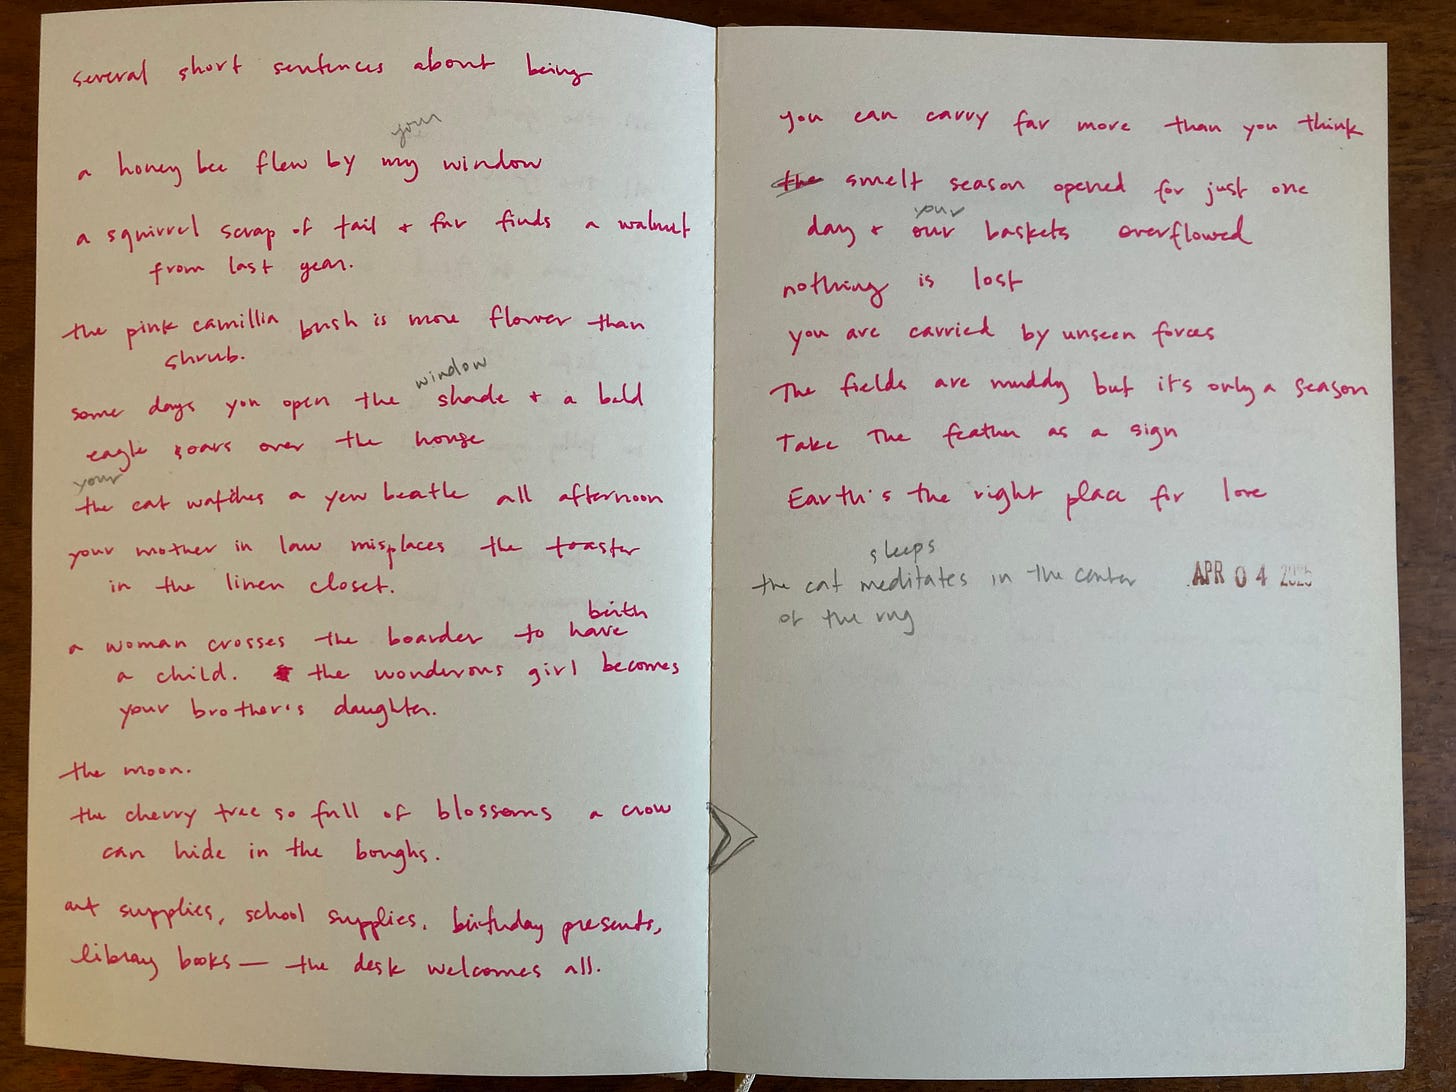 several short sentences about being
your
a honey bee flew by my window
a squirrel scrap of tail + fur finds a walnut
from last year.
the pink camillia bush is more flower than
shrub.
window
some days you open the shade + a bald
eagle soars over the house
your
the cat watches a yew beatle all afternoon
your mother in law misplaces the toaster
in the linen closet.
birth
a woman crosses the boarder to have
a child. the wonderous girl becomes
your brother's daughter.
the moon.
the cherry tree so full of blossoms a crow
can hide in the boughs.
art supplies, school supplies, birthday presents,
library books — the desk welcomes all.
you can carry far more than you think
the smelt season opened for just one
your
day + our baskets overflowed
nothing is lost
you are carried by unseen forces
The fields are muddy but it's only a season
Take The feather as a sign
Earth's the right place for love
sleeps
the cat meditates in the center
of the rug
APR 04 2025